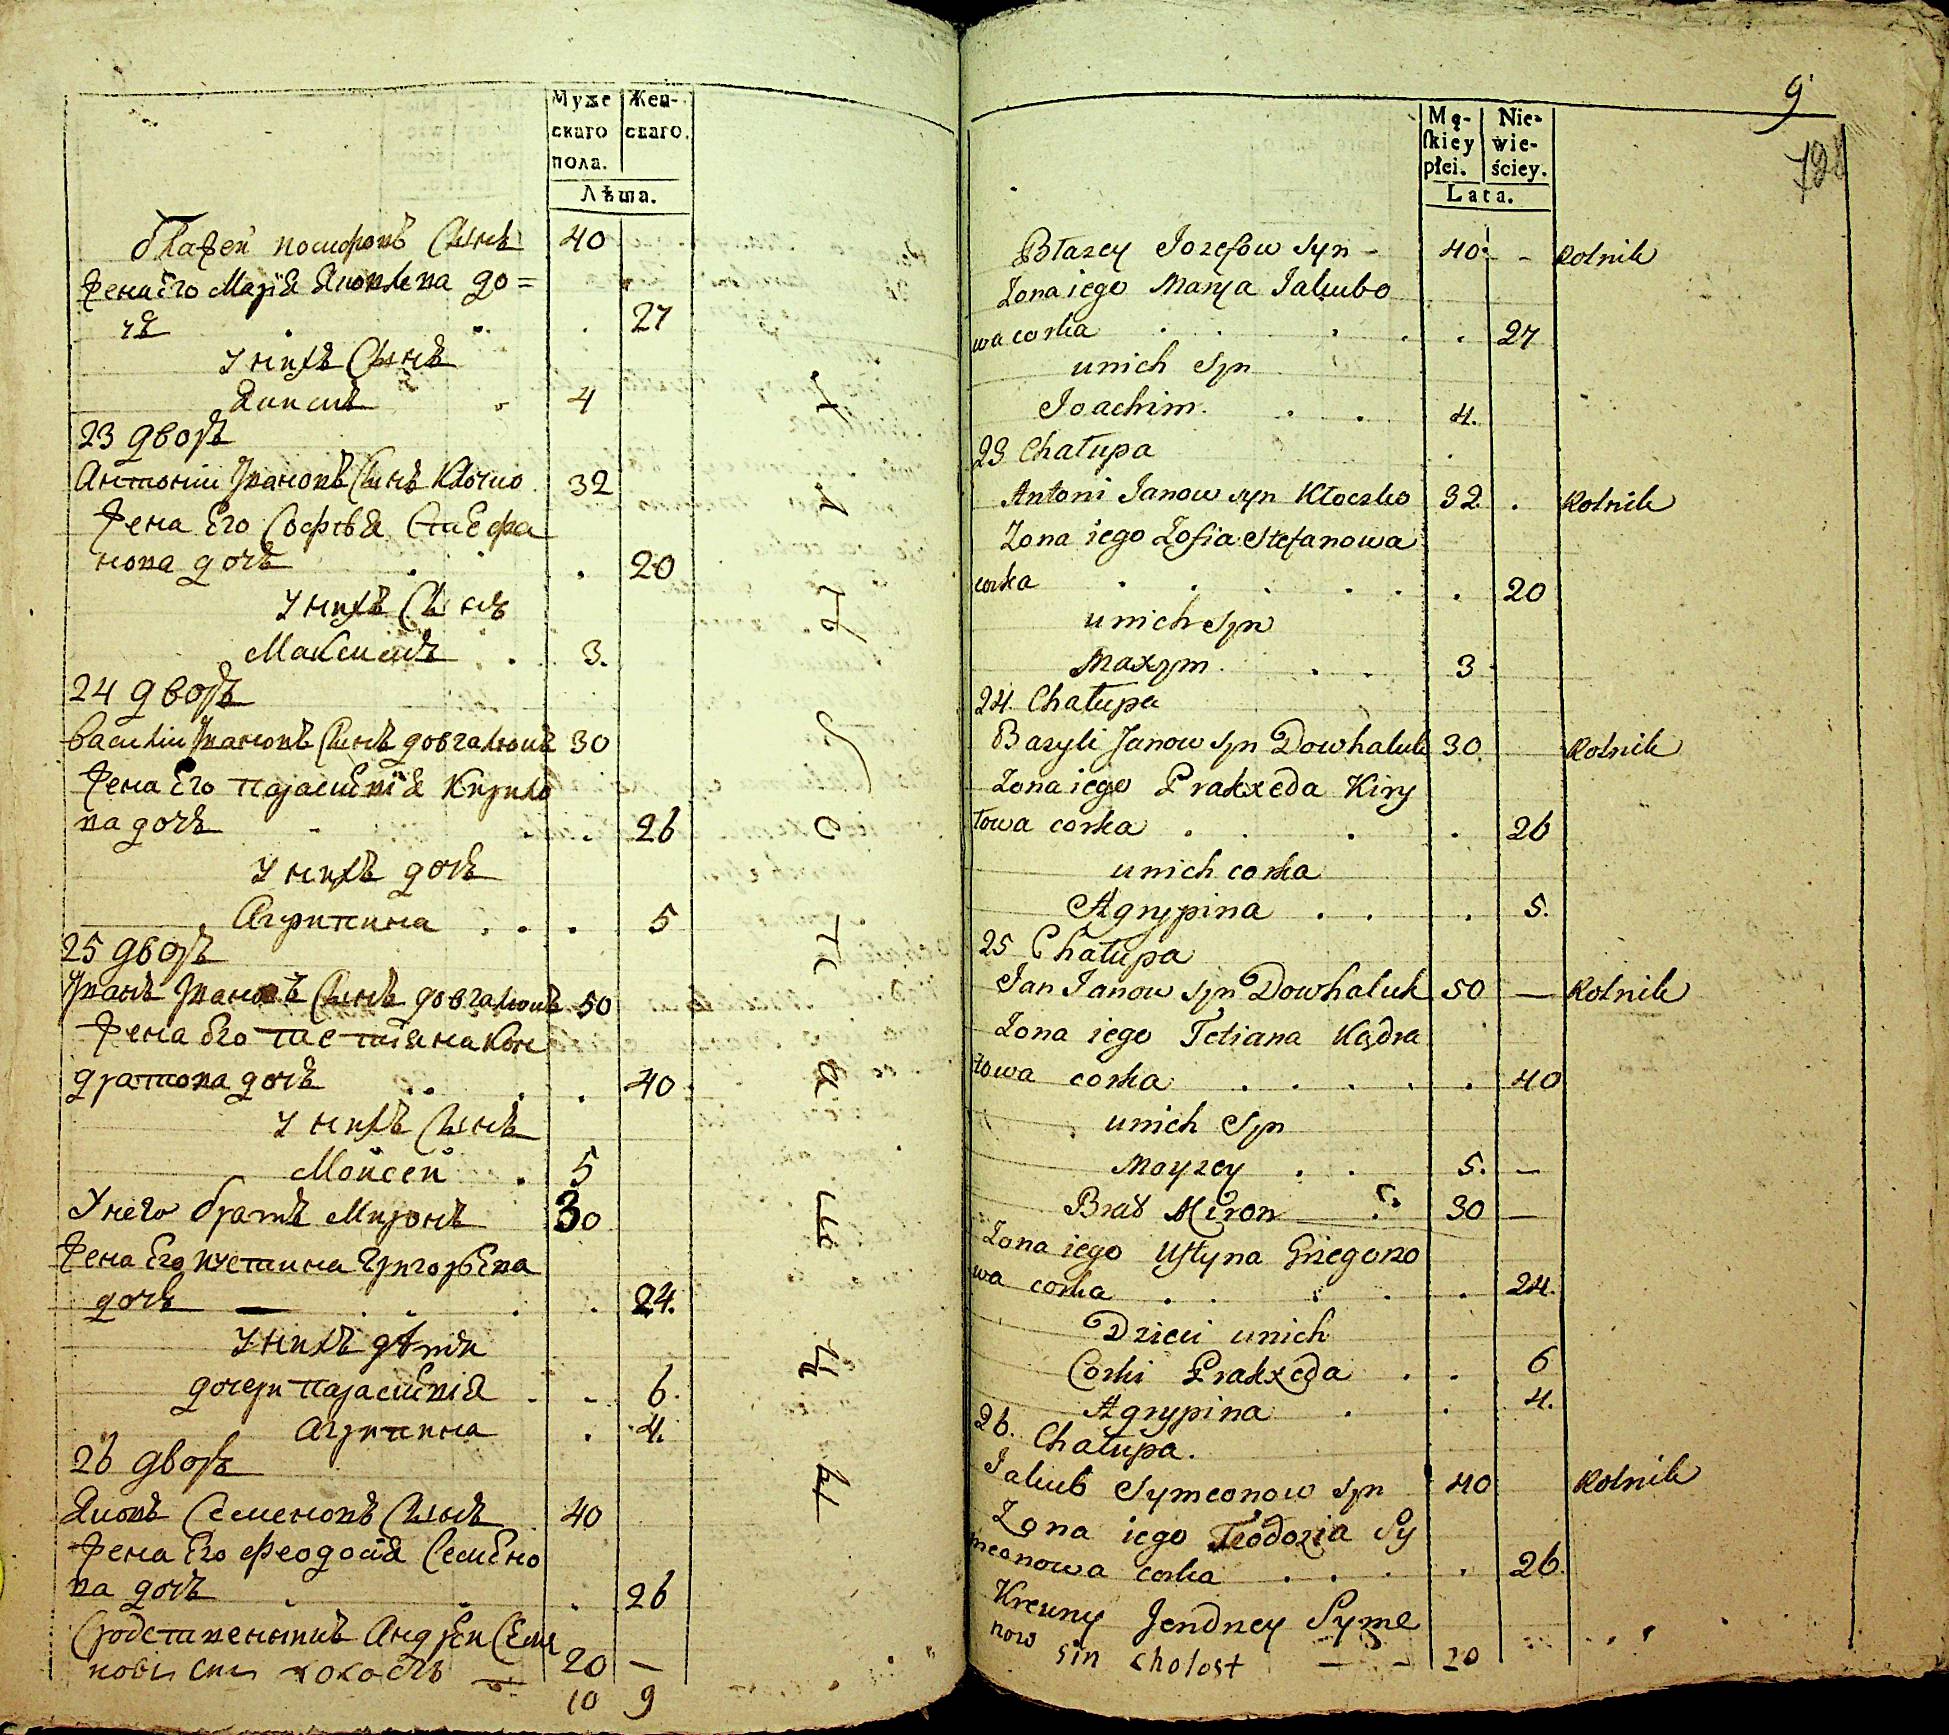 Муже Жен-
скаго скаго.
пола.
Лѣта.
блажей иосифовъ Сынъ 40
жена Его Марiя Яковлева до=
чь 27
У нихъ Сынъ
Яким 4
23 дворъ
Антонiи Ивановъ Сынъ Клочко 32
жена Его Софья Стефа
нова дочь 20
У нихъ Сынъ
Максимъ 3.
24 дворъ
Василiи Ивановъ Сынъ довгалюкъ 30
жена Его параскевiя Кирило
ва дочь 26
У нихъ дочь
Агрипина 5
25 дворъ
Иванъ Ивановъ Сынъ довгалюкъ 50
жена Его татiяна Кон
дратова дочь 40
У нихъ Сынъ
Моисей 5
У него братъ Миронъ 30
жена Его иустина Григорьева
дочь 24.
У нихъ дѣти
дочери параскевiя 6.
Агрипина 4.
26 дворъ
Яковъ Семеновъ Сынъ 40
жена Его Феодосiя Семено
ва дочь 26
Сродственникъ Андрей Семе
новъ сынъ холостъ 20 —
10 9
9
Mę- Nie-
skiey wie-
płci. ściey.
Lata.
Błazey Jozefow syn - 40 - Rolnik
Zona iego Marya Jakubo
wa corka 27
unich Syn
Joachim 4.
23 Chałupa
Antoni Janow syn Kłoczko 32 Rolnik
Zona iego Zofia Stefanowa
corka 20
unich Syn
Maxym 3
24. Chałupa
Bazyli Janow syn Dowhaluk 30 Rolnik
Zona iego Prakxeda Kiry
łowa corka 26
unich corka
Agrypina 5.
25 Chałupa
Jan Janow syn Dowhaluk 50 — Rolnik
Zona iego Tetiana Kądra
towa corka 40
unich Syn
Moyzey 5. —
Brat Miron 30 —
Zona iego Ustyna Griegoro
wa corka 24.
Dzieci unich
Corki Prakxeda 6
Agrypina 4.
26. Chałupa.
Jakub Symeonow syn 40 Rolnik
Zona iego Teodozia Sy
meonowa corka 26
Krewny Jendrzey Syme
now sin cholost 20